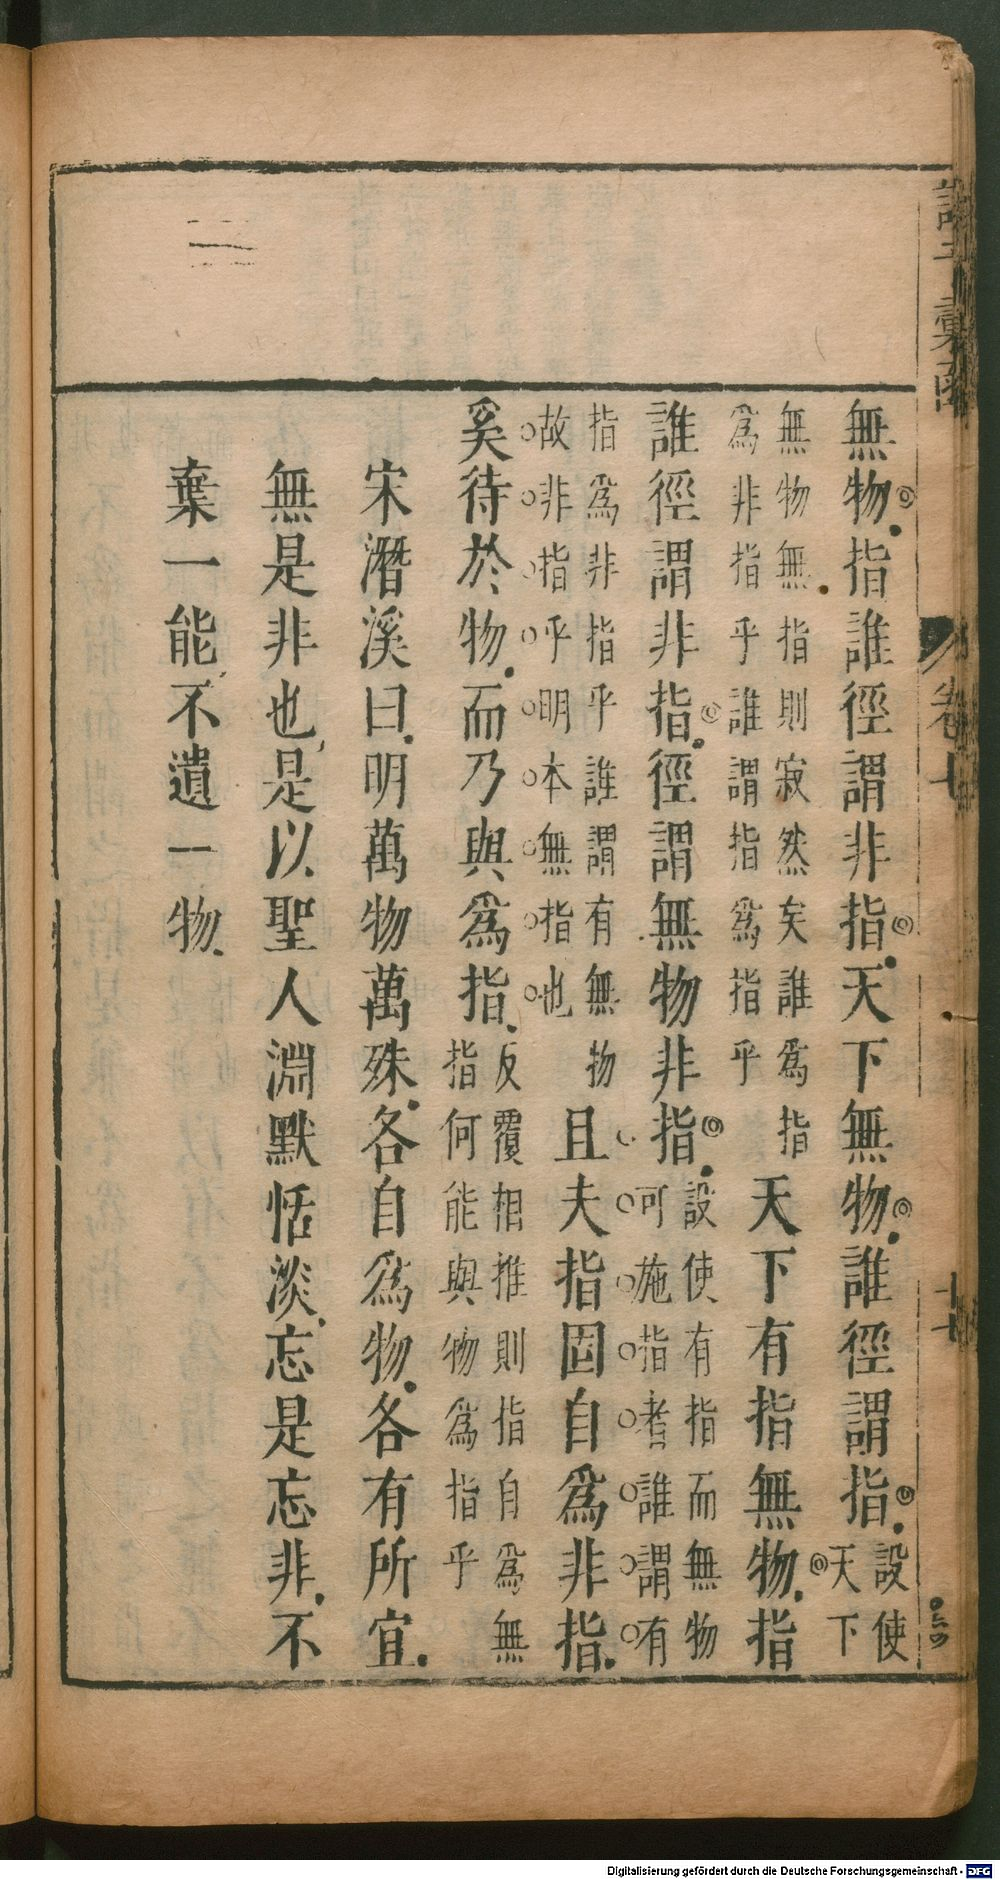 諸子彙函
卷七
十七
無物指誰徑謂非指天下無物誰徑謂指設使天下
無物無指則寂然矣誰爲指爲非指乎誰謂指爲指乎天下有指無物指
誰徑謂非指徑謂無物非指設使有指而無物可施指者誰謂有
指爲非指乎誰謂有無物故非指乎明本無指也且夫指固自爲非指
奚待於物而乃與爲指反覆相推則指自爲無指何能與物爲指乎
宋潛溪曰明萬物萬殊各自爲物各有所宜
無是非也是以聖人淵默恬淡忘是忘非不
棄一能不遺一物
Digitalisierung gefördert durch die Deutsche Forschungsgemeinschaft - DFG